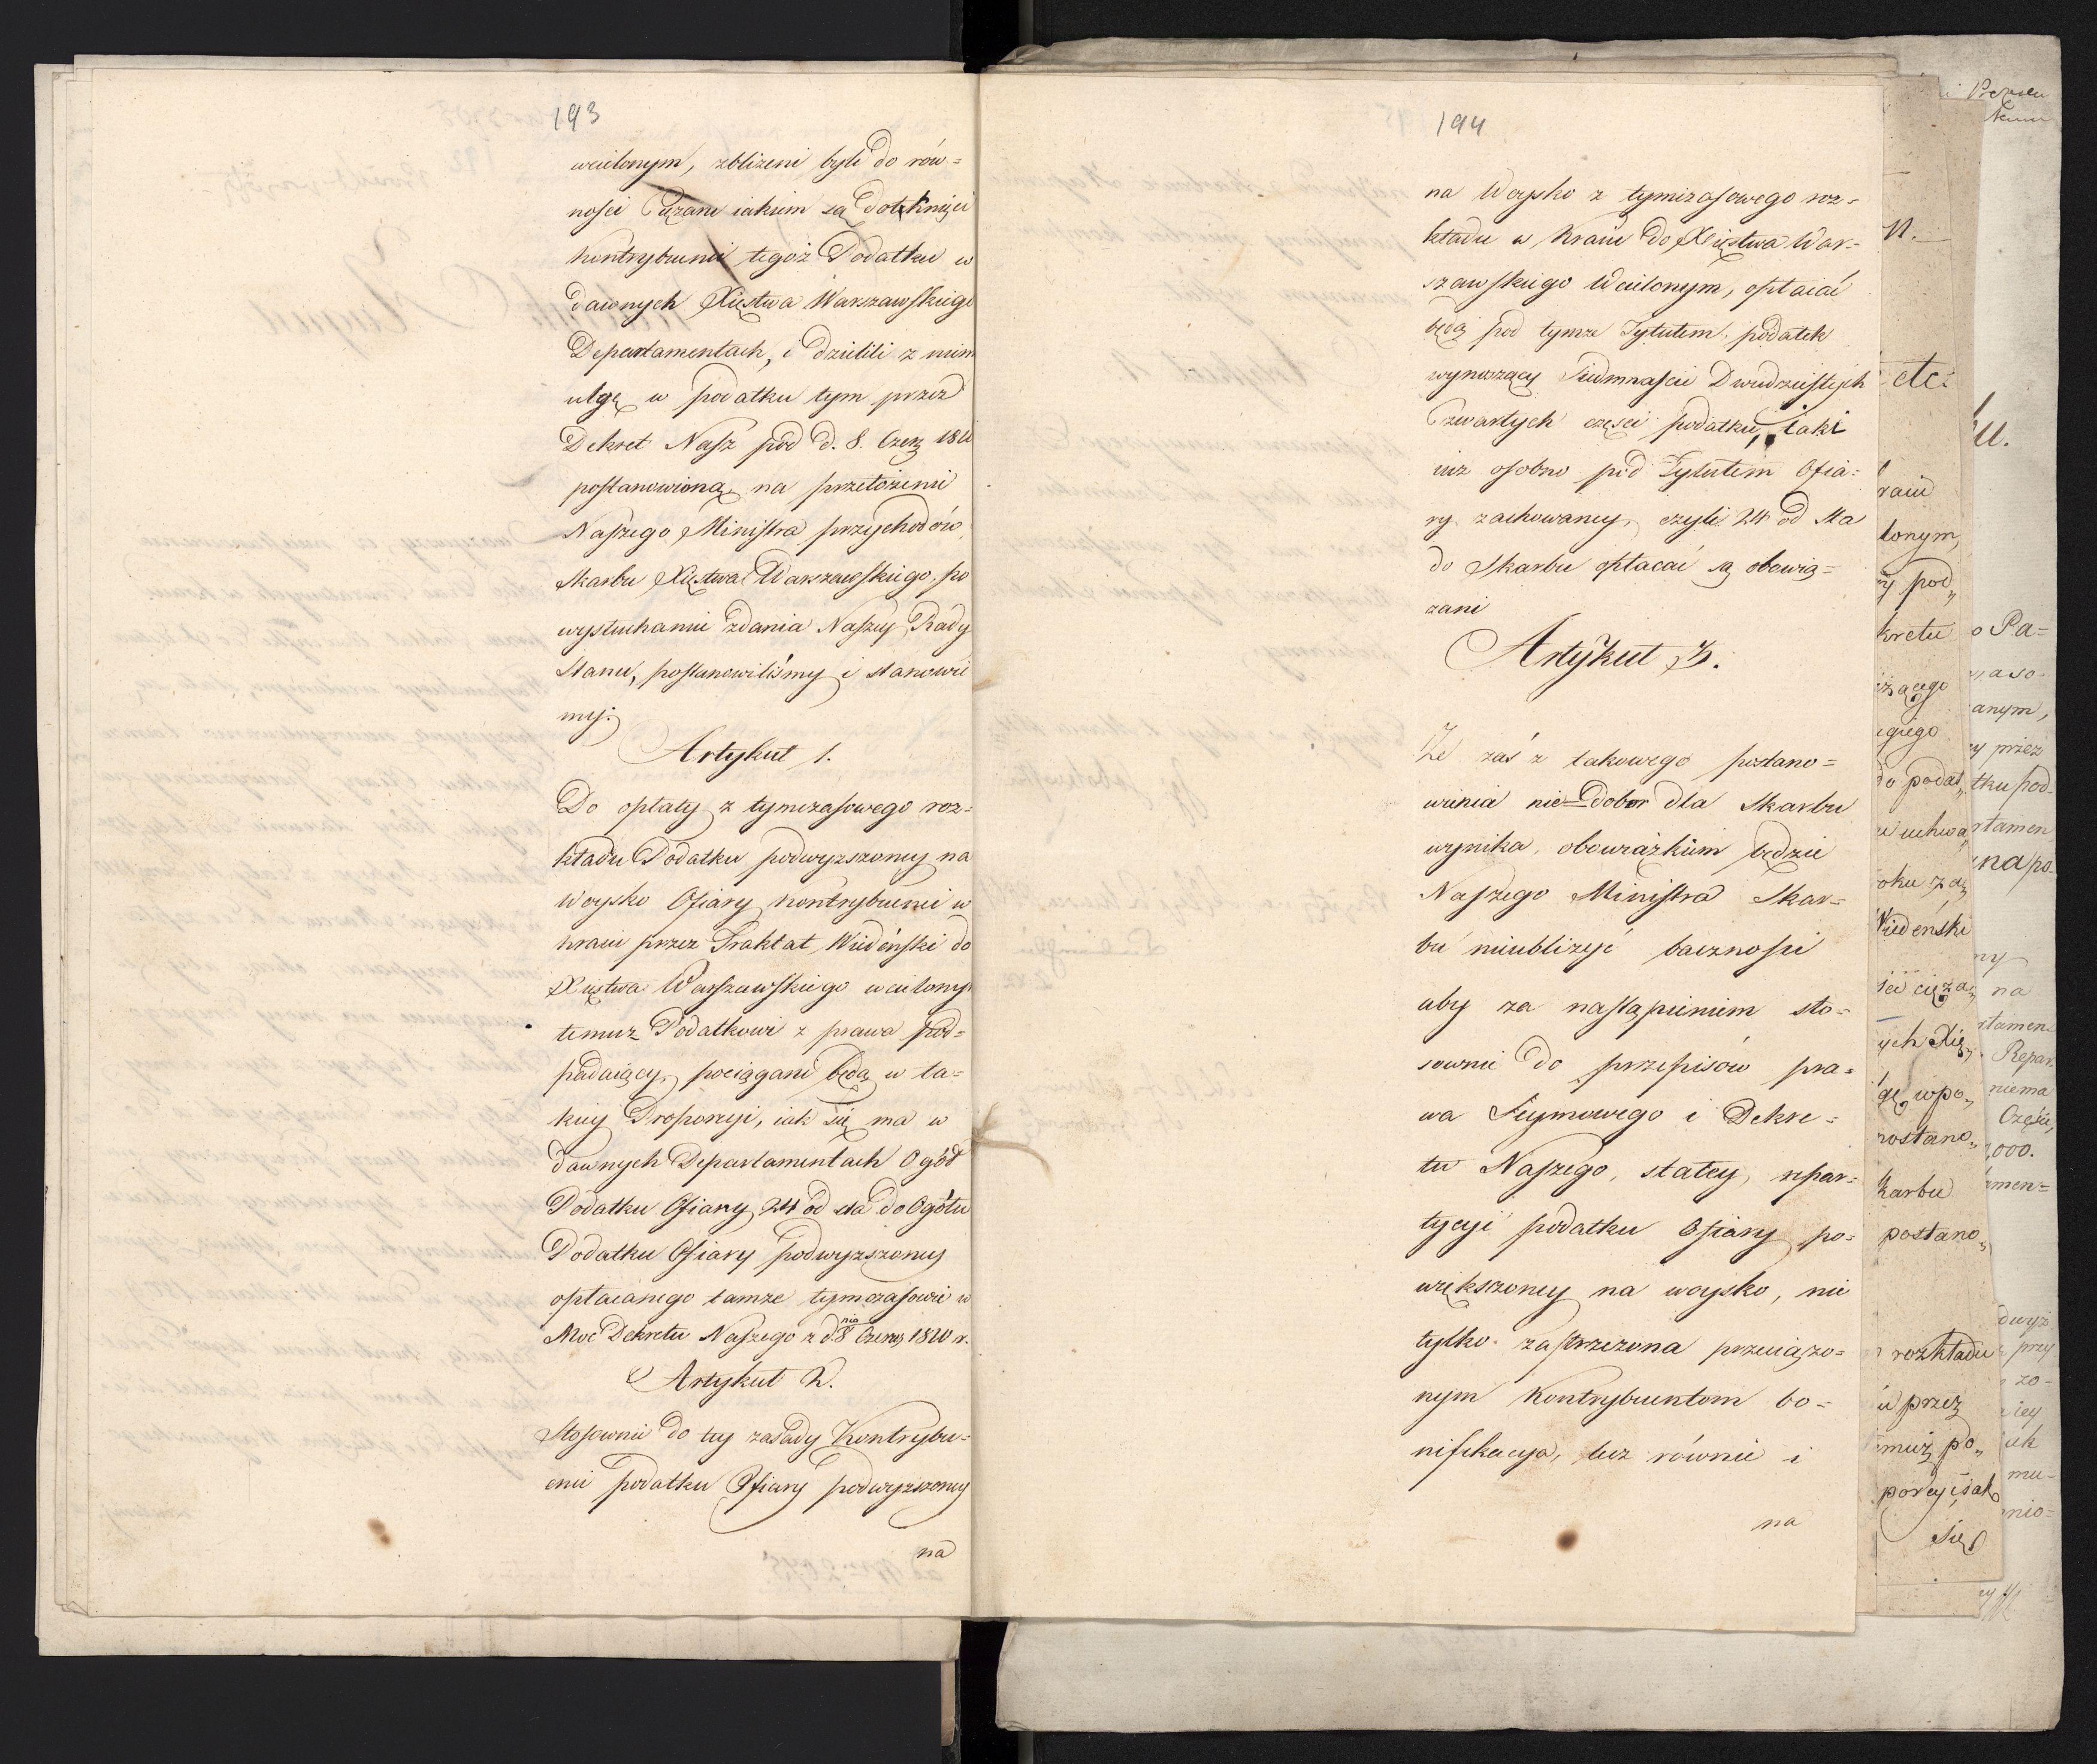 193
wcielonym, zbliżeni byli do rów=
ności Ciężaru iakiem są dotknięci
kontrybuenci tegoż Podatku w
dawnych Xięstwa Warszawskiego
Departamentach, i dzielili z nimi
ulgę w podatku tym przez
Dekret Nasz pod d. 8. Czerw 1810
postanowioną, na przełożenie
Naszego Ministra przychodów
Skarbu Xięstwa Warszawskiego, po
wysłuchaniu zdania Naszey Rady
Stanu, postanowiliśmy i stanowie
my:
Artykuł 1.
Do opłaty z tymczasowego roz=
kładu Podatku podwyższoney na
Woysko Ofiary kontrybuenci w
kraiu przez Traktat Wiedeński do
Xięstwa Warszawskiego wcielonym
temuż Podatkowi z prawa pod=
padaiący, pociągani będą w ta=
kiey Proporcyi, iak się ma w
dawnych Departamentach Ogół
Podatku Ofiary 24 od sta do Ogółu
Podatku Ofiary podwyższoney
opłacanego tamże tymczasowie w
Moc Dekretu Naszego z d. 8 nia Czerwa 1810 r.
Artykuł 2.
Stosownie do tey zasady Kontrybu=
enci podatku Ofiary podwyższoney
na
194
na Woysko z tymczasowego roz=
kładu w kraiu do Xięstwa War=
szawskiego Wcielonym, opłacać
będą pod tymże Tytułem podatek
wynoszący Siedmnaście Dwudziestych
Czwartych części podatku, iaki
iuż osobno pod Tytułem Ofia=
ry zachowaney, czyli 24 od Sta
do Skarbu opłacać są obowią=
zani
Artykuł 3.
Że zaś z takowego postano=
wienia nie=dobor dla Skarbu
wynika, obowiązkiem będzie
Naszego Ministra Skar=
bu nieubliżyć baczności
aby za nastąpieniem sto=
sownie do przepisów pra=
wa Seymowego i Dekre=
tu Naszego, stałey, repar=
tycyi podatku Ofiary po=
większoney na woysko, nie
tylko zastrzeżona przeciążo=
nym Kontrybuentom bo=
nifikacya, lecz równie i
na
etc:
raiu
lonym,
y pod„
kretu
do podat„
uchwa„
roku za„
Wiedeński
ych Xię„
gę w po„
postano„
karbu
postano„
rozkładu
u przez
muż po„
porcyi iak
się
o Pa=
anym,
y przez
tku pod=
rtamen
na po=
na
Repar
niema
Części,
,000.
amen=